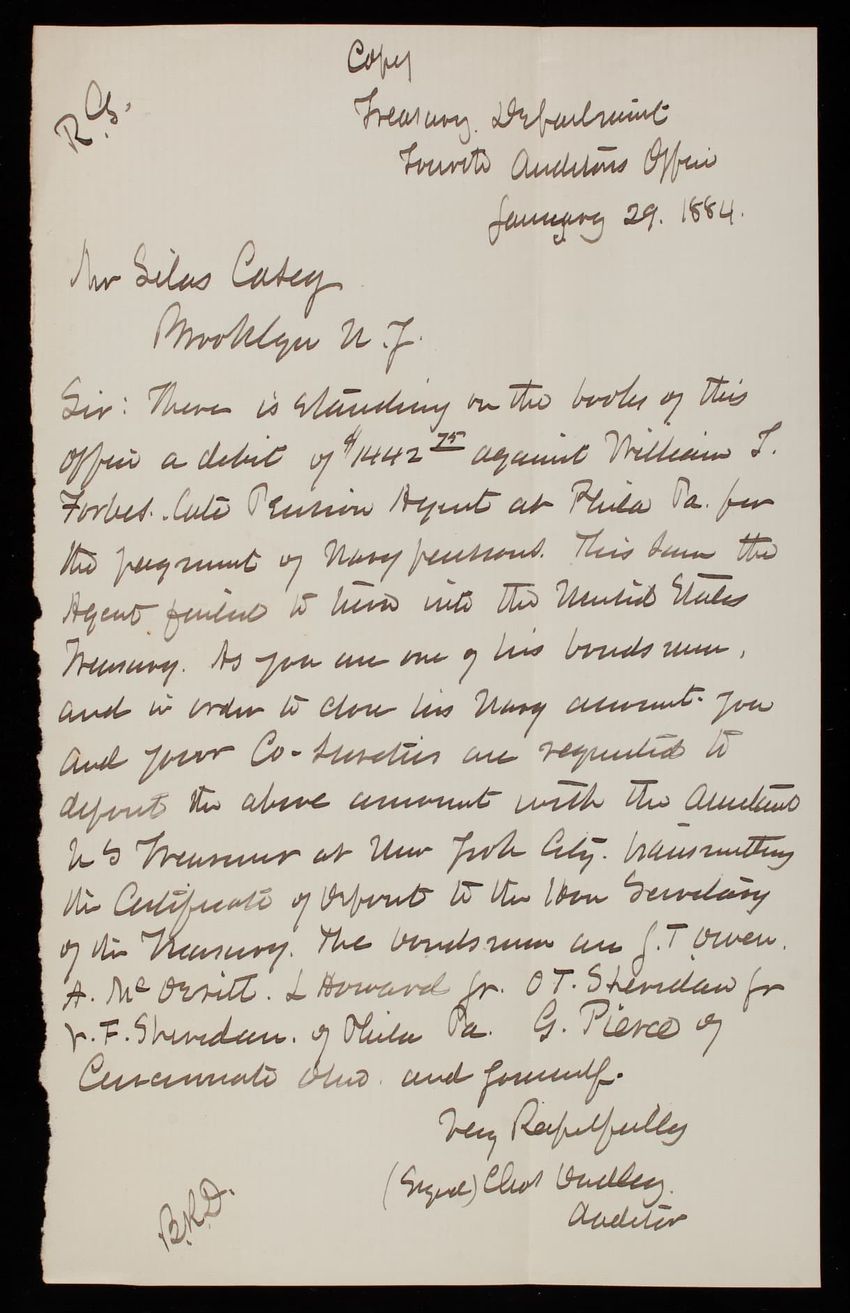 Copy
R.G.
Treasury Department
Fourth Auditors Office
January 29. 1884.
Mr Silas Casey
Brooklyn N.Y.
Sir: There is standing on the books of this
office a debit of $1442 75 against William T.
Forbes. late Pension Agent at Phila Pa. for
the payment of Navy pensions. This sum the
Agent failed to turn into the United States
Treasury. As you are one of his bondsmen,
and in order to close his Navy account you
and your Co-Sureties are requested to
deposit the above amount with the Assistant
U S Treasurer at New York City. transmitting
the Certificate of Deposit to the Hon Secretary
of the Treasury. The bondsmen are J. T Owen.
A. Mc L Howard Jr. O T. Sheridan for
F. Sheridan. of Phila Pa. G. Pierce of
Cincinnati Ohio. and yourself.
Very Respectfully
(Signed) Chas
Auditor
B.R.D.